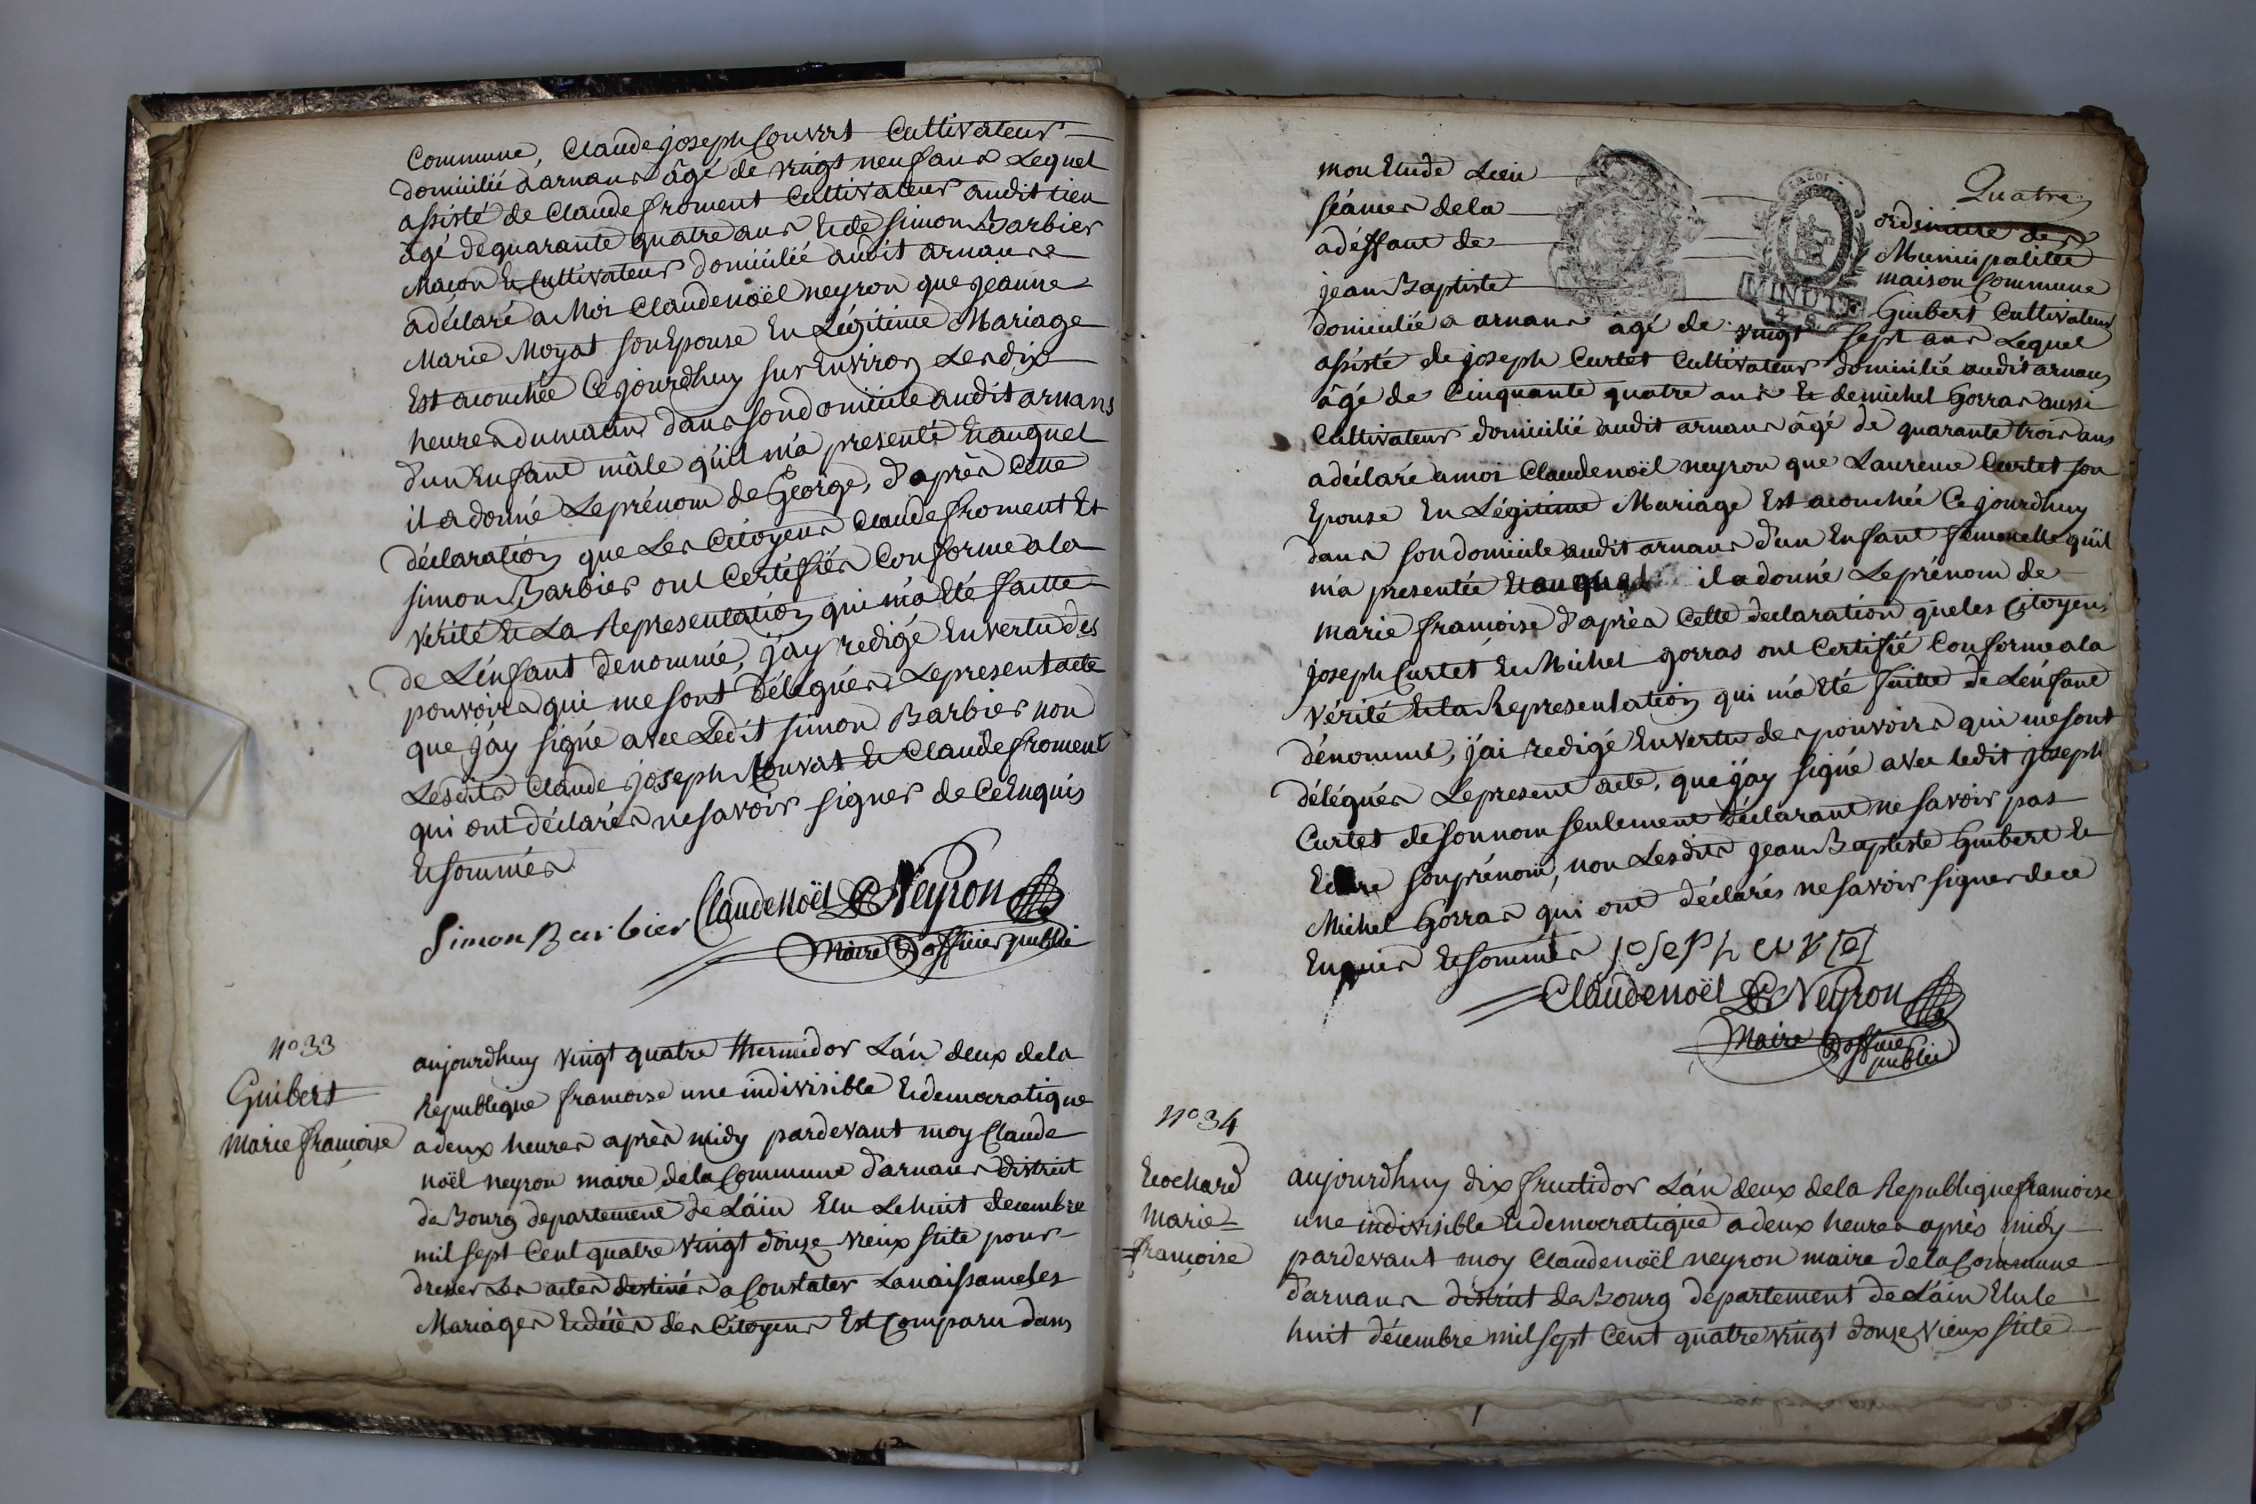 Commune, Claude joseph Convert Cultivateur
domicilié a arnans âgé de vingt neuf ans Lequel
assisté de Claude froment Cultivateur audit lieu
âgé de quarante quatre ans Et de simon Barbier
Maçon Et Cultivateur domicilié audit arnans
a déclaré a Moi Claude noël neyron que jeanne
Marie Moyat son Epouse En Légitime Mariage
Est acouchée Ce jourdhuy sur Environ Les dix
heures du matin dans son domicile audit arnans
d'un Enfant mâle qu'il m'a presenté Et auquel
il a donné Le prénom de George, d'après Cette
déclaration que Les Citoyens Claude froment Et
simon Barbier ont Certifiés Conforme a la
vérité Et La Representation qui m'a Eté faitte
de L'énfant denommé, j'ay redigé En vertu des
pouvoirs qui me sont délégués Le present acte
que j'ay signé avec Ledit simon Barbier non
Lesdits Claude joseph Convert Et Claude froment
qui ont déclarés ne savoir signer de Ce Enquis
Et sommés
Simon Barbier Claude noël Neyron
Maire & officier public
n° 33
Guibert
Marie françoise
aujourdhuy vingt quatre thermidor L'án deux de la
Republique francoise une indivisible Et democratique
a deux heures après midy pardevant moy Claude
noël neyron maire de la Commune d'arnans district
de Bourg departement de L'áin Elu Le huit decembre
mil sept Cent quatre vingt douze vieux stile pour
dresser Les actes destinés a Constater La naissance les
Mariages Et décès des Citoyens Est Comparu dans
Quatre
mon Etude Lieu ordinaire des
séances de la Municipalitée
a déffaut de maison Commune
jean Baptiste Guibert Cultivateur
domicilié a arnans âgé de vingt sept ans Lequel
assisté de joseph Curtet Cultivateur domicilié audit arnans
âgé de Cinquante quatre ans Et de michel Gorras aussi
Cultivateur domicilié audit arnans âgé de quarante trois ans
a déclaré a moi Claude noël neyron que Laurence Curtet son
Epouse En Légitime Mariage Est acouchée Ce jourdhuy
dans son domicile audit arnans d'un Enfant femenelle qu'il
m'a presentée Et auquel il a donné Le prénom de
marie françoise d'après Cette declaration que les Citoyens
joseph Curtet Et Michel gorras ont Certifié Conforme a la
vérité Et la Representation qui m'a Eté faitte de L'énfant
dénommé, j'ai redigé En vertu des pouvoirs qui me sont
délégués Le present acte, que j'ay signé avec ledit joseph
Curtet de son nom seulement déclarant ne savoir pas
Ecrire son prénom, non Lesdits jean Baptiste Guibert Et
Michel Gorras qui ont déclarés ne savoir signer de ce
Enquis Et sommés joseph curtet
Claude noël Neyron
Maire & officier
public
n° 34
Eeochard
Marie
françoise
aujourdhuy dix fructidor L'án deux de la Republique francoise
une indivisible Et democratique a deux heures après midy
pardevant moy Claude noël neyron maire de la Commune
d'arnans district de Bourg département de L'áin Elu le
huit décembre mil sept Cent quatre vingt douze vieux stile